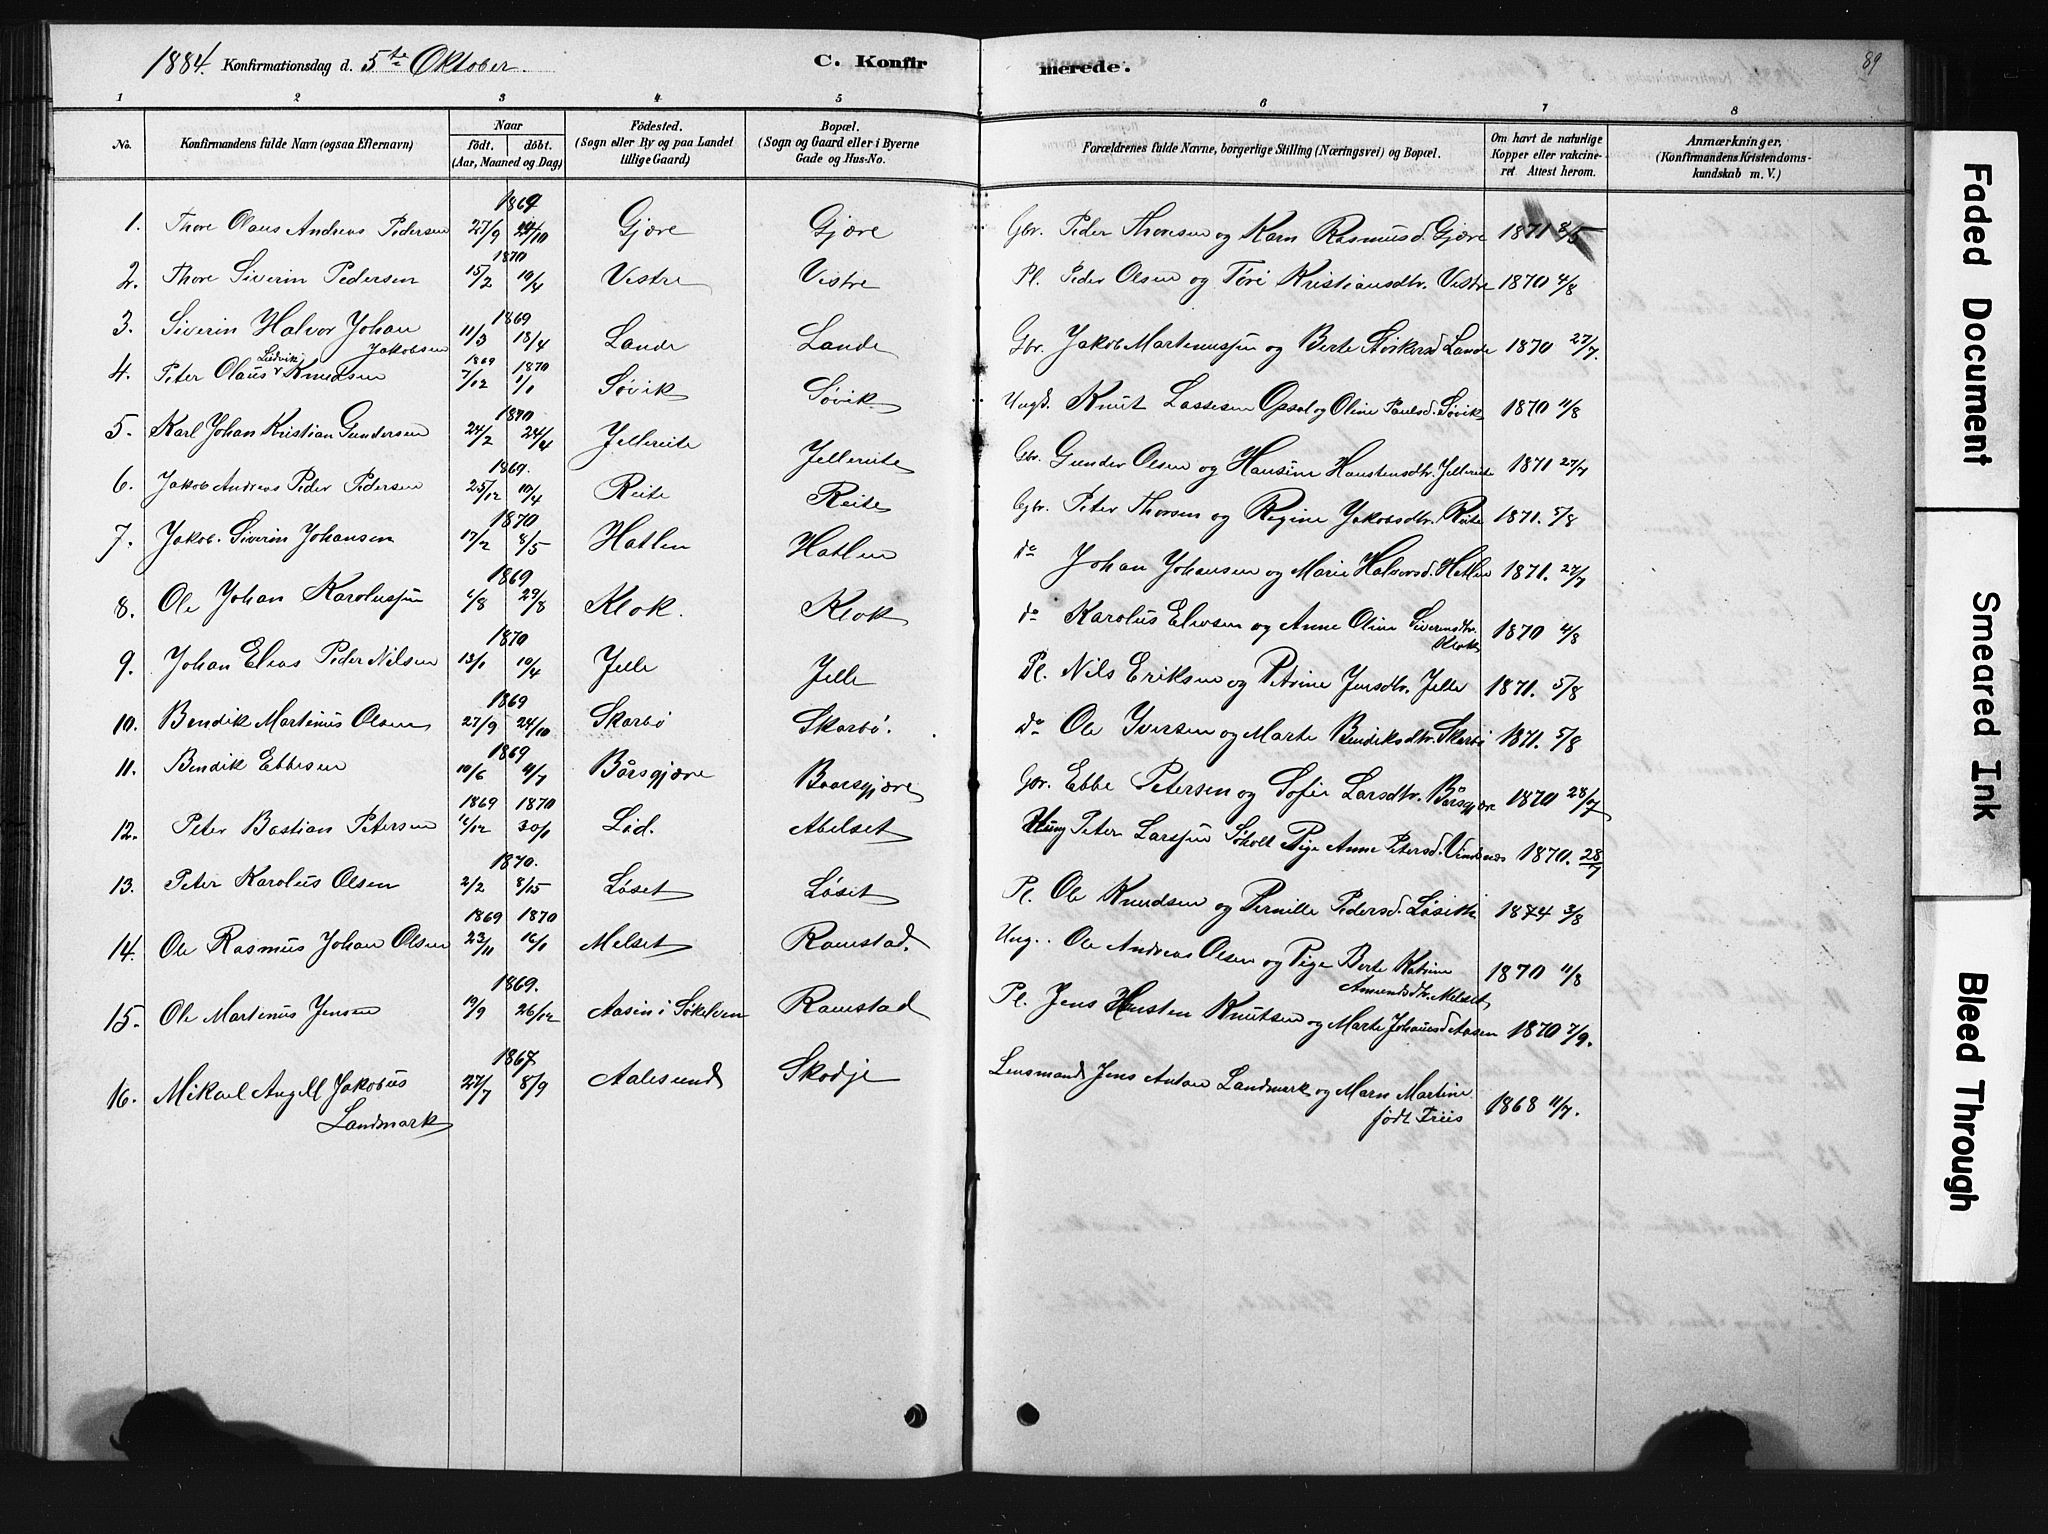 1884. Konfirmationsdag d. 5te Oktober. C. Konfir merede. 89
1 2 3 4 5 6 7 8
No. Konfirmandens fulde Navn (ogsaa Efternavn) Naar födt. döbt. (Aar, Maaned og Dag) Födested. (Sogn eller By og paa Landet tillige Gaard) Bopæl. (Sogn og Gaard eller i Byerne Gade og Hus-No. Forældrenes fulde Navne, borgerlige Stilling (Næringsvei) og Bopæl. Om havt de naturlige Kopper eller vakcineret Attest herom. Anmærkninger, (Konfirmandens Kristendomskundskab m. V.)
1. Thore Olaus Andreas Pedersen 1869 27/9 24/10 Gjøre Gjøre Gbr. Peder Thoresen og Karn Rasmusd. Gjøre 1871 8/5
2. Thore Siverin Pedersen 1870 15/2 10/4 Vistre Vistre Pl. Peder Olsen og Tøri Kristiansdtr. Vistre 1870 4/8
3. Siverin Halvor Johan Jakobsen 1869 11/3 18/4 Lande Lande Gbr. Jakob Martinussen og Berte Lande 1870 27/7.
4. Peter Olaus Ludvik Knudsen 1869 7/12 1870 1/1 Søvik Søvik Ungk. Knut Lassesen Opsal og Oline Paulsd. Søvik 1870 11/8
5. Karl Johan Kristian Gundersen 1870 24/2 24/4 Jellereite Jellereite Gbr. Gunder Olsen og Hansine Haustensdtr. Jellereite 1871 27/7
6. Jakob Andreas Peder Pedersen 1869. 25/12 10/4 Reite Reite Gbr. Peter Thorsen og Regine Jakobsdtr. Reite 1871. 5/8
7. Jakob. Siverin Johansen 1870 17/2 8/5 Hatlen Hatlen do Johan Johansen og Marie Halvorsd. Hatlen 1871. 27/7
8. Ole Johan Karolussen 1869 1/8 29/8 Klok. Klok do Karolus Eliasen og Anne Oline Siverinsdtr. Klok 1870 4/8
9. Johan Elias Peder Nilsen 1870 13/1 10/4 Jelle Jelle Pl. Nils Eriksen og Petrine Jensdtr. Jelle 1871. 5/8
10. Bendik Martinus Olsen 1869 27/9 24/10 Skarbø Skarbø. do Ole Iversen og Marte Bendiksdtr. Skarbø 1871. 5/8
11. Bendik Ebbesen 1869 10/6 11/7 Bårsgjære Baarsgjære Gbr. Ebbe Petersen og Sofie Larsdtr. Bårsgjære 1870 28/7
12. Peter Bastian Petersen 1869 16/12 1870 30/1 Lid. Abelset Ung Peter Larssen Søholt Pige Anne Petersd. Vindsnes 1870. 28/7
13. Peter Karolus Olsen 1870. 2/2 8/15 Løset Løset Pl. Ole Knudsen og Pernille Pedersd. Løseth 1874 3/8
14. Ole Rasmus Johan Olsen 1869 23/11 1870 16/1 Melset Ramstad. Ung. Ole Andreas Olsen og Pige Berte Katrine Amundsdtr. Melset 1870 11/8
15. Ole Martinus Jensen 1869. 19/9 26/12 Aasen i Søkelven Ramstad Pl. Jens Hansten Knutsen og Marte Johansd Aasen 1870 7/9.
16. Mikael Angell Jakobus Landmark 1867 27/7 8/9 Aalesund Skodje Lensmand Jens Anton Landmark og Maren Martine født Friis 1868 11/7.
Faded Document
Smeared Ink
Bleed Through